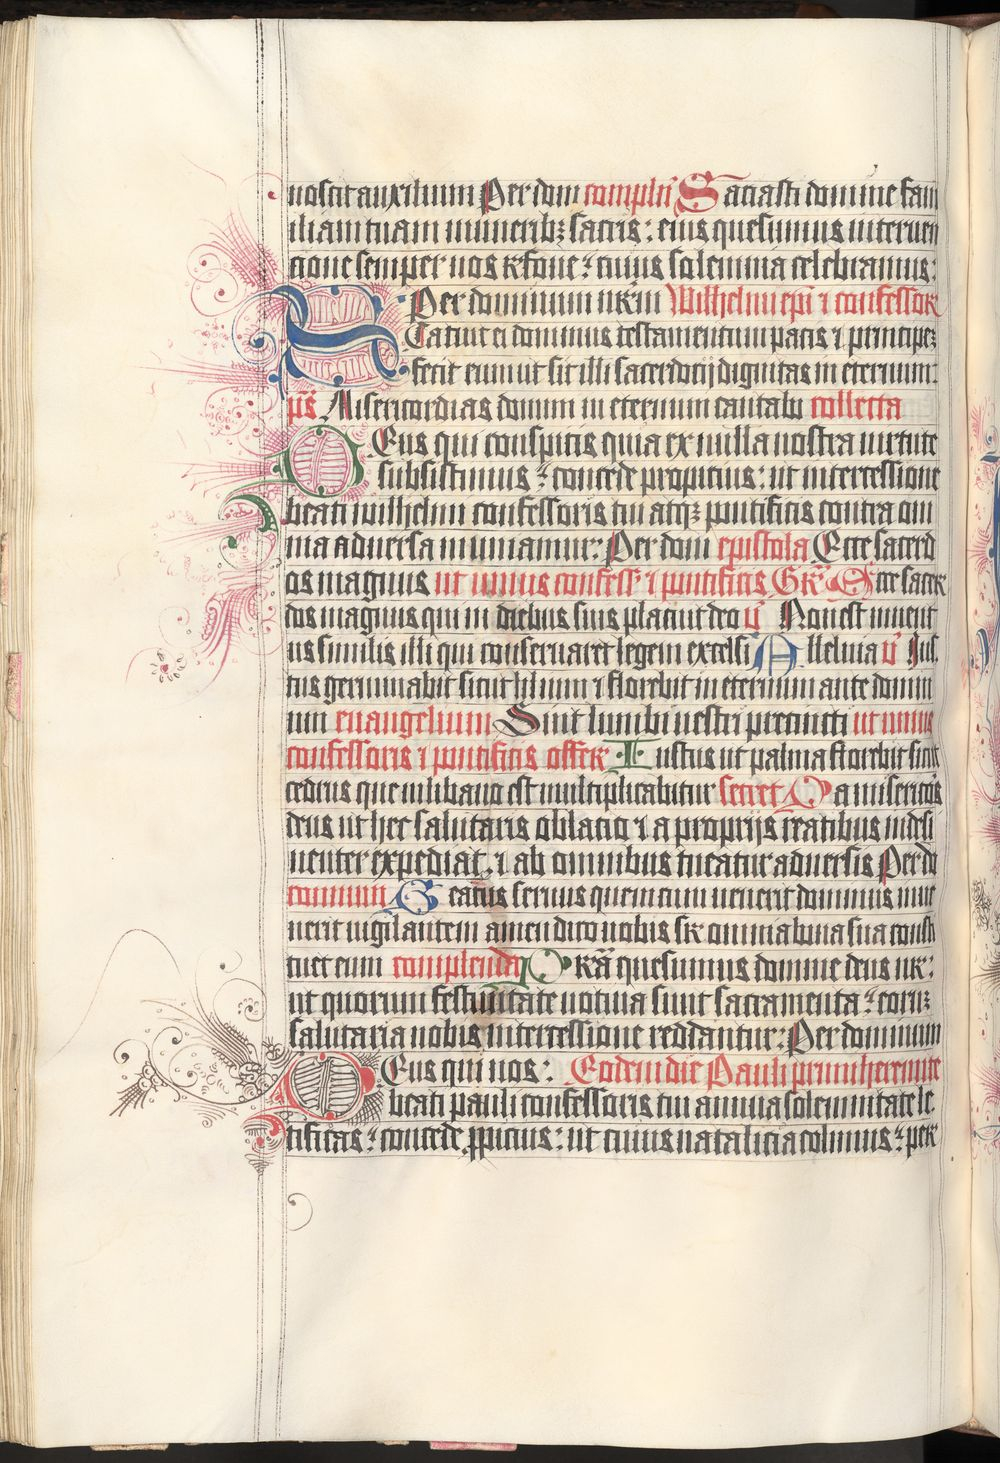 noscit auxilium Per dom compleñ Saciasti domine fam
iliam tuam muneribꝫ sacris : eius quesumus interuen
cione semper nos rͤfoue : cuius solemnia celebramus :
Per dominum nrm̄ Wilhelmi epī ⁊ confessorꝭ
Statuit ei dominus testamentum pacis ⁊ principeꝫ
fecit eum ut sit illi sacerdocij dignitas in eternum :
pš Misericordias domini in eternum cantabo collecta
Deus qui conspicis quia ex nulla nostra uirtute
subsistimus : concede propicius : ut intercessione
beati wilhelmi confessoris tui atqꝫ pontificis contra om
nia aduersa muniamur : Per dom epistola Ecce sacerd
os magnus ut unius confess̄ ⁊ pontificis Gr̄ Ecce sacer
dos magnus qui in diebus suis placuit deo v̄ Non est inuent
us similis illi qui conseruaret legem excelsi Alleluia v̄ Jus
tus germinabit sicut lilium ⁊ florebit in eternum ante domin
um euangelium Sint lumbi uestri precincti ut unius
confessoris ⁊ pontificis offerꝭ Iustus ut palma florebit sicut
cedrus que in libano est multiplicabitur secret Da misericors
deus ut hec salutaris oblacio ⁊ a proprijs reatibus indesi
nenter expediat ⁊ ab omnibus tueatur aduersis Per do
commun Beatus seruus quem cum uenerit dominus inue
nerit uigilantem amen dico uobis sr̄ omnia bona sua consti
tuet eum complenda Prā quesumus domine deus nr̄ :
ut quorum festiuitate uotiua sunt sacramenta : eorꝫ
salutaria nobis intercessione reddantur : Per dominum
Deus qui nos : Eodem die Pauli primi heremite
beati pauli confessoris tui annua solemnitate le
tificas : concede ꝓpicius : ut cuius natalicia colimus : perꝭ